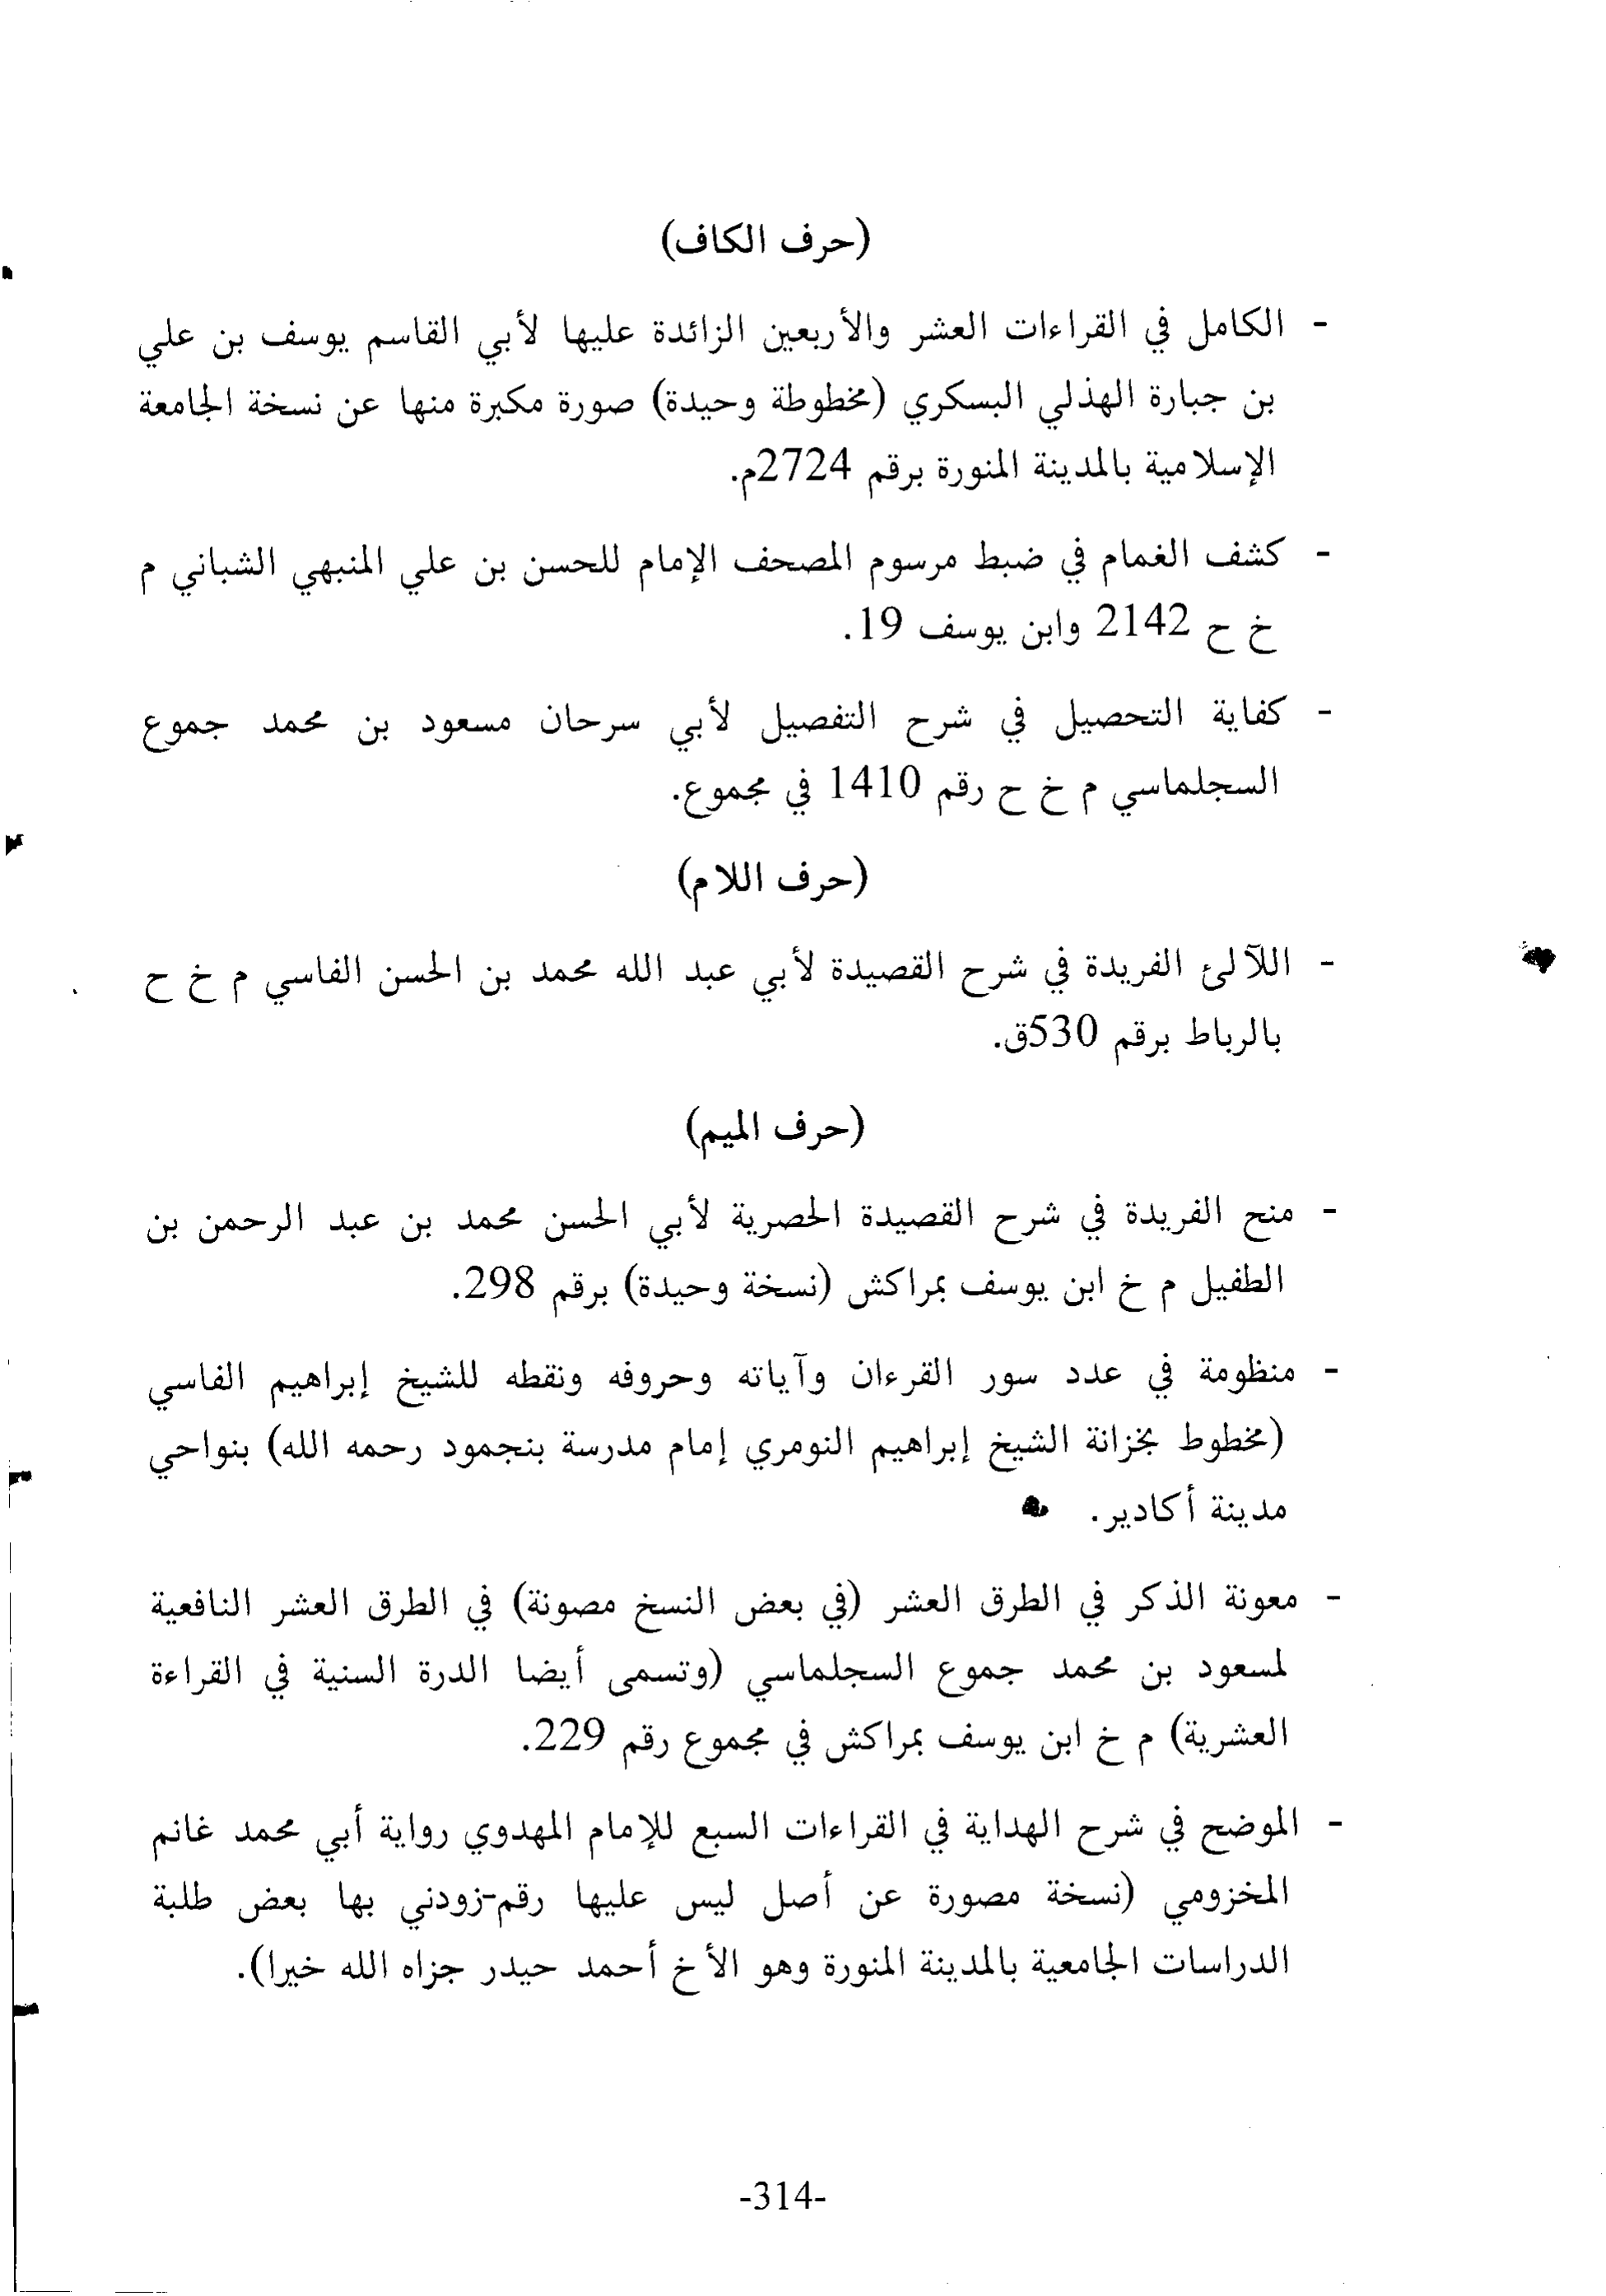 (حرف الكاف)
- الكامل في القراءات العشر والأربعين الزائدة عليها لأبي القاسم يوسف بن علي
بن جبارة الهذلي البسكري (مخطوطة وحيدة) صورة مكبرة منها عن نسخة الجامعة
الإسلامية بالمدينة المنورة برقم 2724م.
- كشف الغمام في ضبط مرسوم المصحف الإمام للحسن بن علي المنبهي الشباني م
خ ح 2142 وابن يوسف 19.
- كفاية التحصيل في شرح التفصيل لأبي سرحان مسعود بن محمد جموع
السجلماسي م خ ح رقم 1410 في مجموع.
(حرف اللام)
- اللآلئ الفريدة في شرح القصيدة لأبي عبد الله محمد بن الحسن الفاسي م خ ح
بالرباط برقم 530ق.
(حرف الميم)
- منح الفريدة في شرح القصيدة الحصرية لأبي الحسن محمد بن عبد الرحمن بن
الطفيل م خ ابن يوسف بمراكش (نسخة وحيدة) برقم 298.
- منظومة في عدد سور القرءان وآياته وحروفه ونقطه للشيخ إبراهيم الفاسي
(مخطوط بخزانة الشيخ إبراهيم النومري إمام مدرسة بنجمود رحمه الله) بنواحي
مدينة أكادير.
- معونة الذكر في الطرق العشر (في بعض النسخ مصونة) في الطرق العشر النافعية
لمسعود بن محمد جموع السجلماسي (وتسمى أيضا الدرة السنية في القراءة
العشرية) م خ ابن يوسف بمراكش في مجموع رقم 229.
- الموضح في شرح الهداية في القراءات السبع للإمام المهدوي رواية أبي محمد غانم
المخزومي (نسخة مصورة عن أصل ليس عليها رقم-زودني بها بعض طلبة
الدراسات الجامعية بالمدينة المنورة وهو الأخ أحمد حيدر جزاه الله خيرا).
-314-